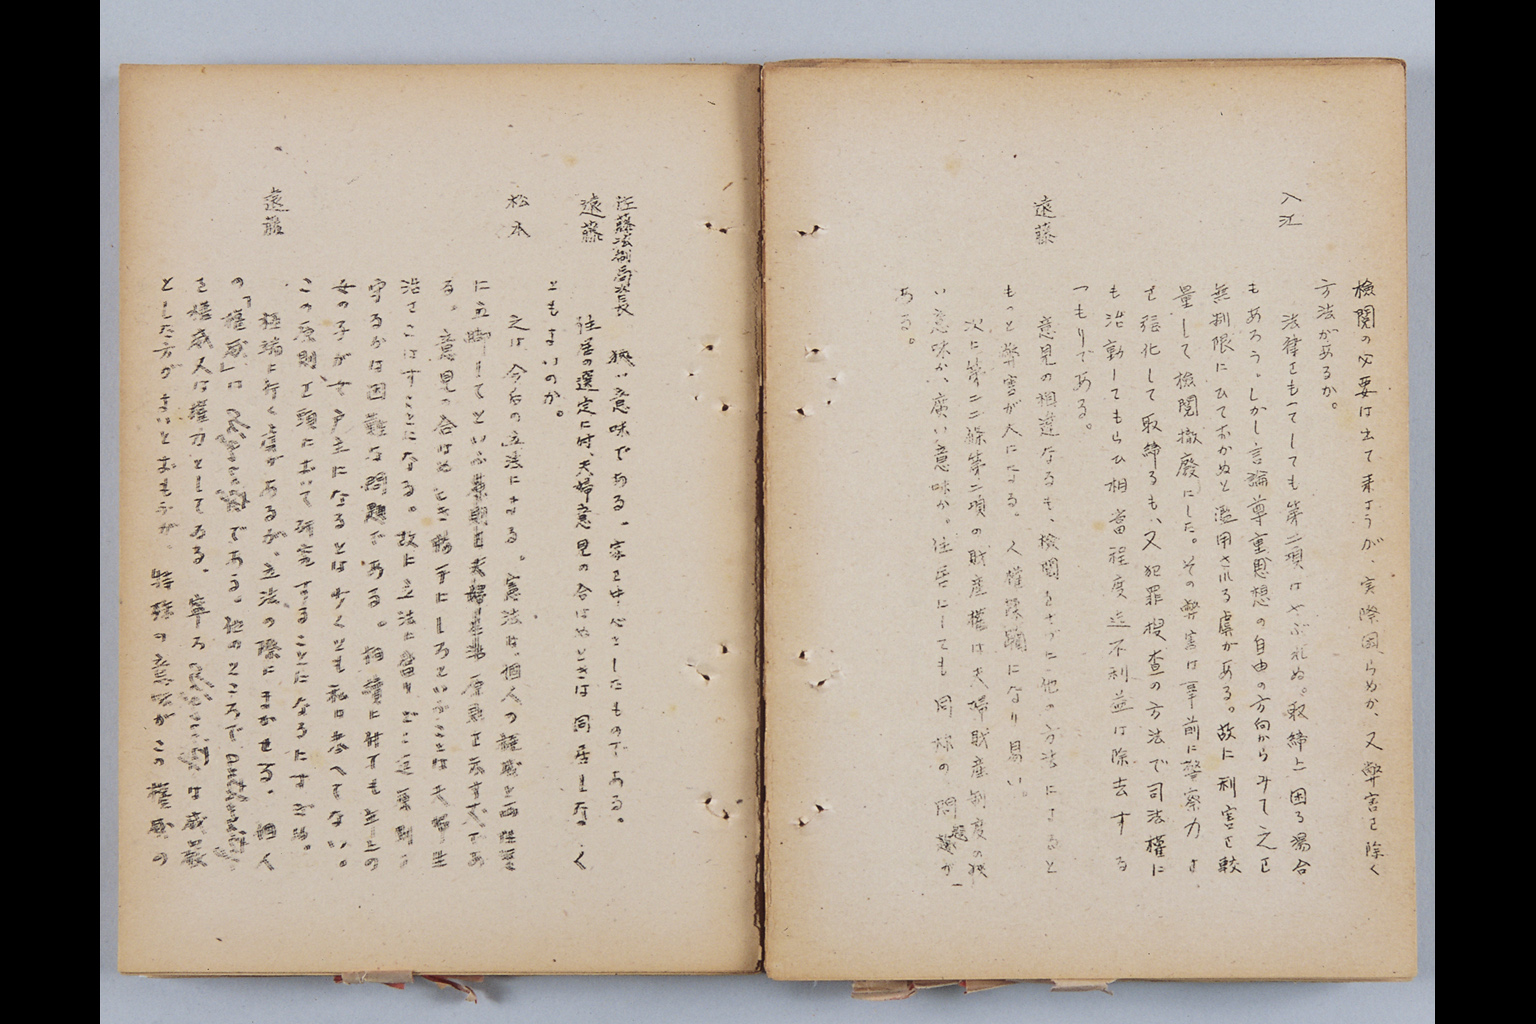 檢閲の必要は出て来ようが、実際困らぬか、又弊害を除く
方法があるか。
入江
法律をもってしても第二項はやぶれぬ。取締上困る場合
もあろう。しかし言論尊重思想の自由の方向からみて之を
無制限にひておかぬと濫用される虞がある。故に利害を較
量して檢閲撤廢にした。その弊害は事前に警察力
を強化して取締るも、又犯罪捜査の方法で司法權に
も活動してもらひ相当程度迄不利益は除去する
つもりである。
遠藤
意見の相違なるも、檢閲をせずに他の方法によると
もっと弊害が大になる。人權蹂躙になり易い。
次に第二二條第二項の財産權は夫婦財産制度の狹
い意味か、廣い意味か。住居にしても同様の問題が
ある。
佐藤法制局次長
狹い意味である。家を中心としたものである。
遠藤
住居の選定に付、夫婦意見の合はぬときは同居しなく
ともよいのか。
松本
之は今后の立法による。憲法は、個人の權威と両性
に立脚して
る。意見の合はぬとき勝手にしろといふことは夫婦生
活をこはすことになる。故に立法に當りどこ迄原則を
守るかは困難な問題である。相續に對すも年上の
女の子が女戸主になるとは少くとも私は考へてない。
この原則を頭において研究することになるにすぎぬ。
遠藤
極端に行く虞があるが、立法の際にまかせる。個人
の「權威」は である。他のところで
を權威又は權力としてゐる、寧ろ は威嚴
とした方がよいとおもふが。特殊の意味がこの權威の